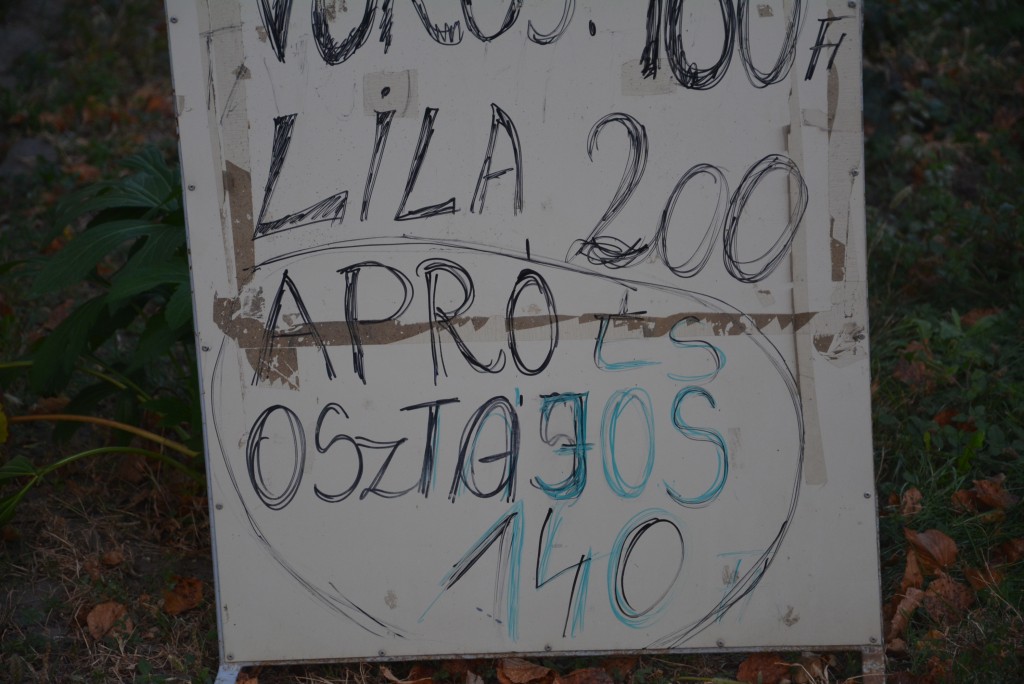 VÖRÖS. 160 Ft
LILA 200
APRÓ ÉS
OSZTÁJOS
140